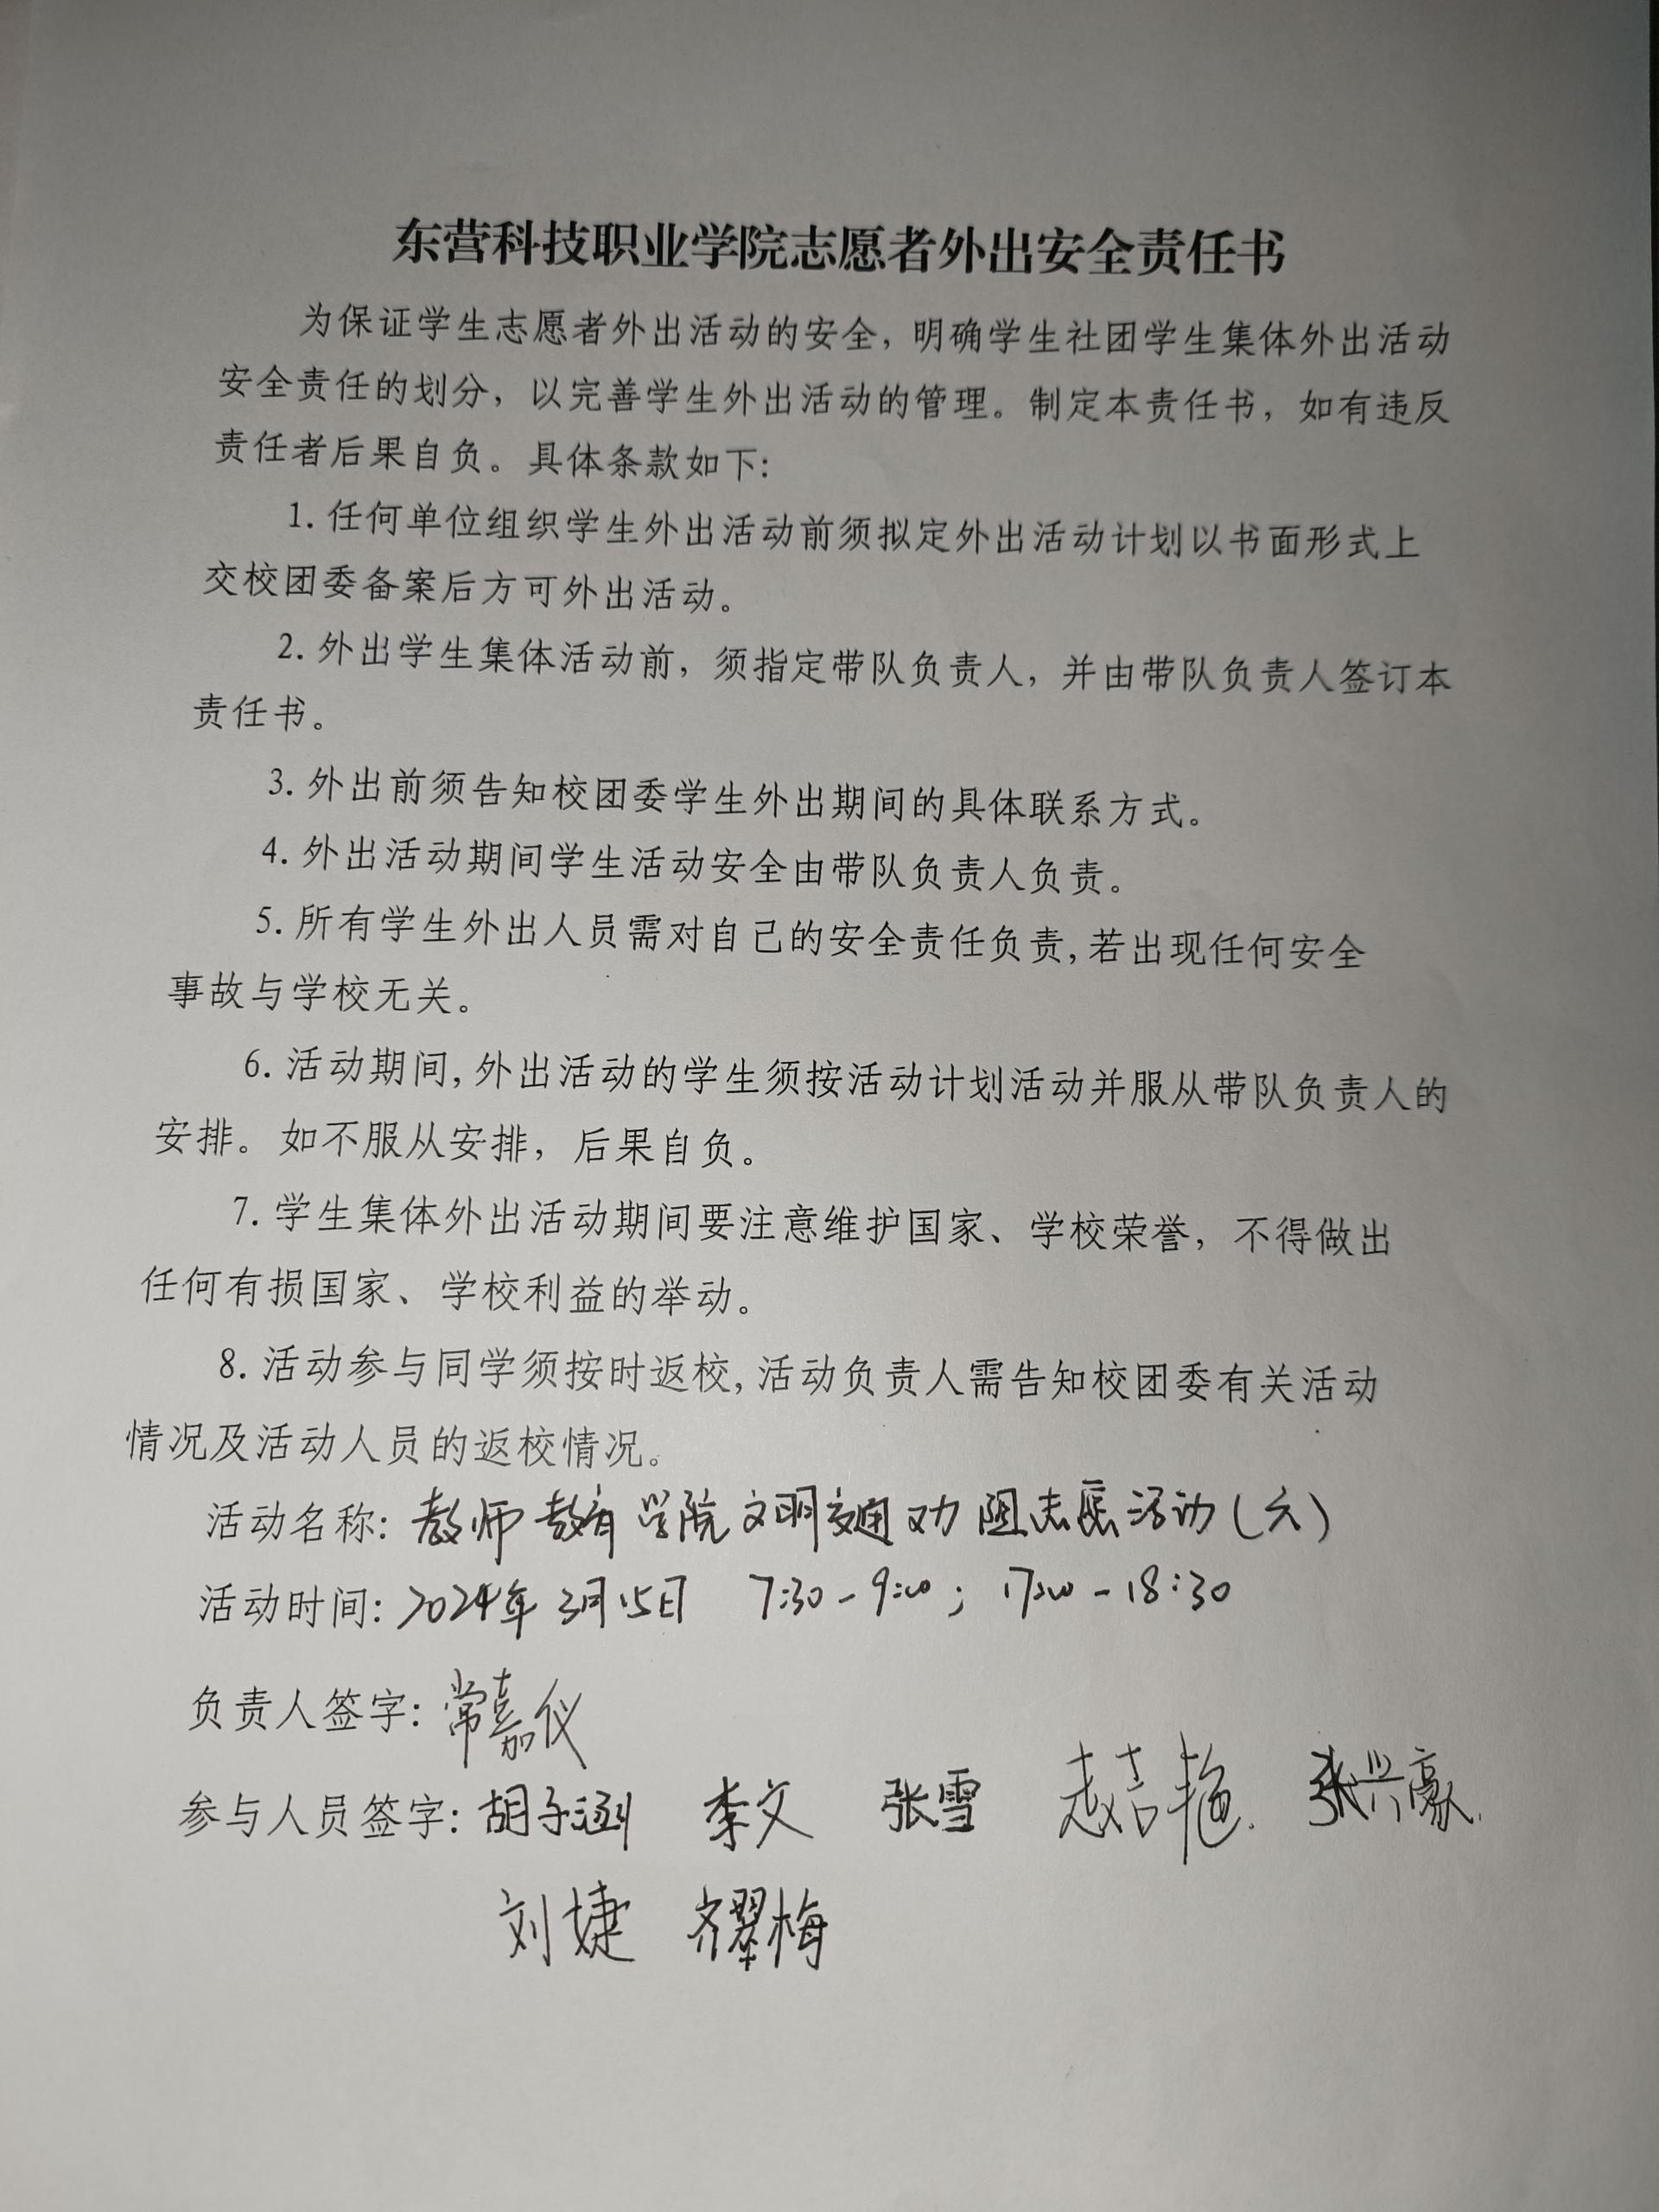 东营科技职业学院志愿者外出安全责任书
为保证学生志愿者外出活动的安全，明确学生社团学生集体外出活动
安全责任的划分，以完善学生外出活动的管理。制定本责任书，如有违反
责任者后果自负。具体条款如下:
1. 任何单位组织学生外出活动前须拟定外出活动计划以书面形式上
交校团委备案后方可外出活动。
2. 外出学生集体活动前，须指定带队负责人，并由带队负责人签订本
责任书。
3. 外出前须告知校团委学生外出期间的具体联系方式。
4. 外出活动期间学生活动安全由带队负责人负责。
5. 所有学生外出人员需对自己的安全责任负责,若出现任何安全
事故与学校无关。
6. 活动期间,外出活动的学生须按活动计划活动并服从带队负责人的
安排。如不服从安排，后果自负。
7. 学生集体外出活动期间要注意维护国家、学校荣誉，不得做出
任何有损国家、学校利益的举动。
8. 活动参与同学须按时返校,活动负责人需告知校团委有关活动
情况及活动人员的返校情况。
活动名称: 教师教育学院文明交通劝阻志愿活动(六)
活动时间: 2024年3月15日 7:30-9:00; 17:00-18:30
负责人签字: 常嘉仪
参与人员签字: 胡子涵 李文 张雪 赵吉艳 张兴豪
刘婕 齐翠梅